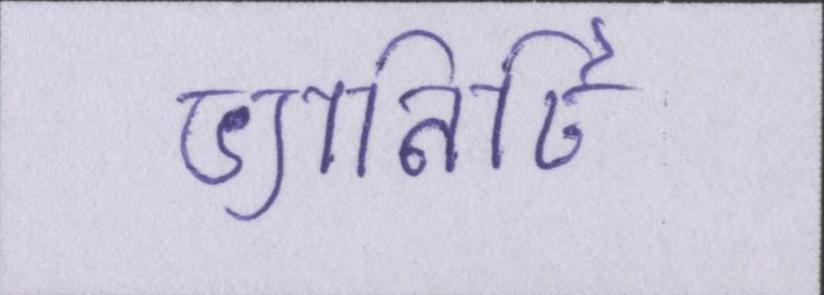 ভ্যানিটি